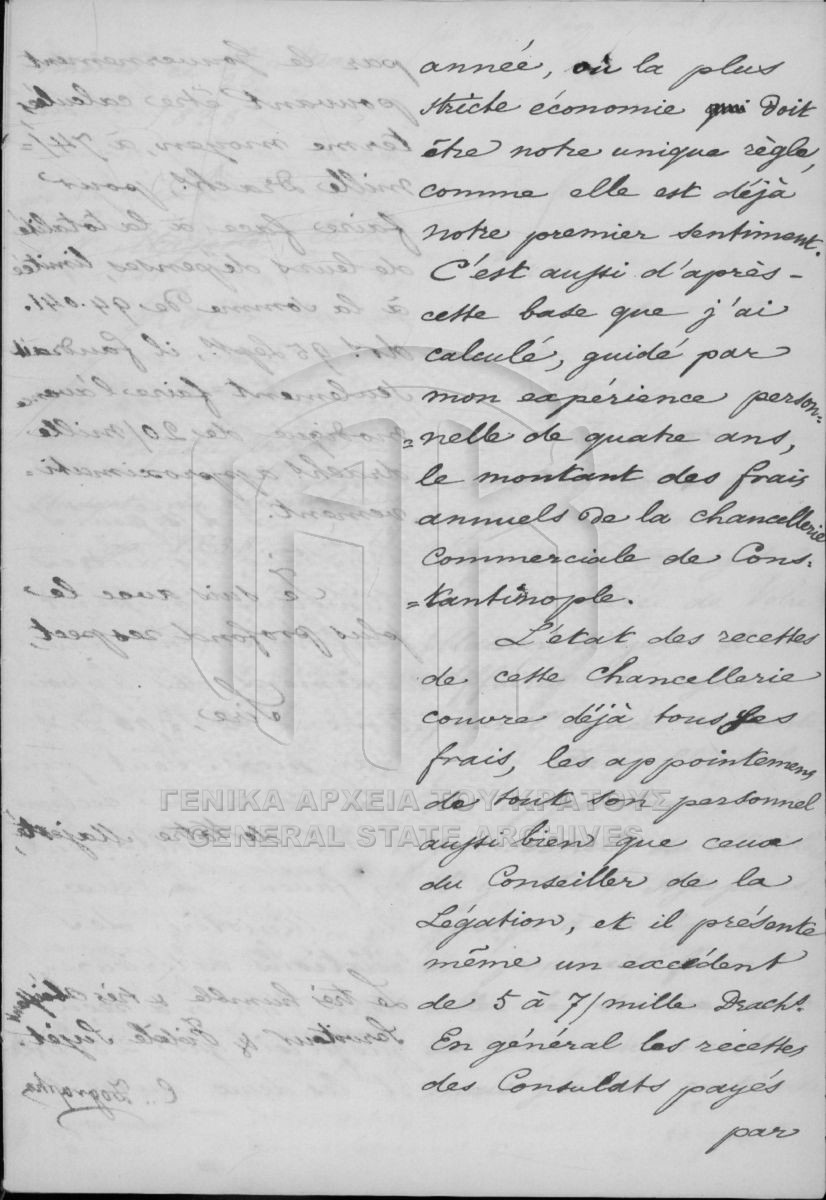 année, où la plus
stricte économie doit
être notre unique règle,
comme elle est déjà
notre premier sentiment.
C'est aussi d'après-
cette base que j'ai
calculé, guidé par
mon expérience person-
=nelle de quatre ans,
le montant des frais
annuels de la chancellerie
commerciale de Cons-
=tantinople.
L'état des recettes
de cette chancellerie
couvre déjà tous ses
frais, les appointemens
de tout son personnel
aussi bien que ceux
du Conseiller de la
Légation, et il présente
même un excédent
de 5 à 7/mille Drachs.
En général les recettes
des Consulats payés
par
ΓΕΝΙΚΑ ΑΡΧΕΙΑ ΤΟΥ ΚΡΑΤΟΥΣ
GENERAL STATE ARCHIVES